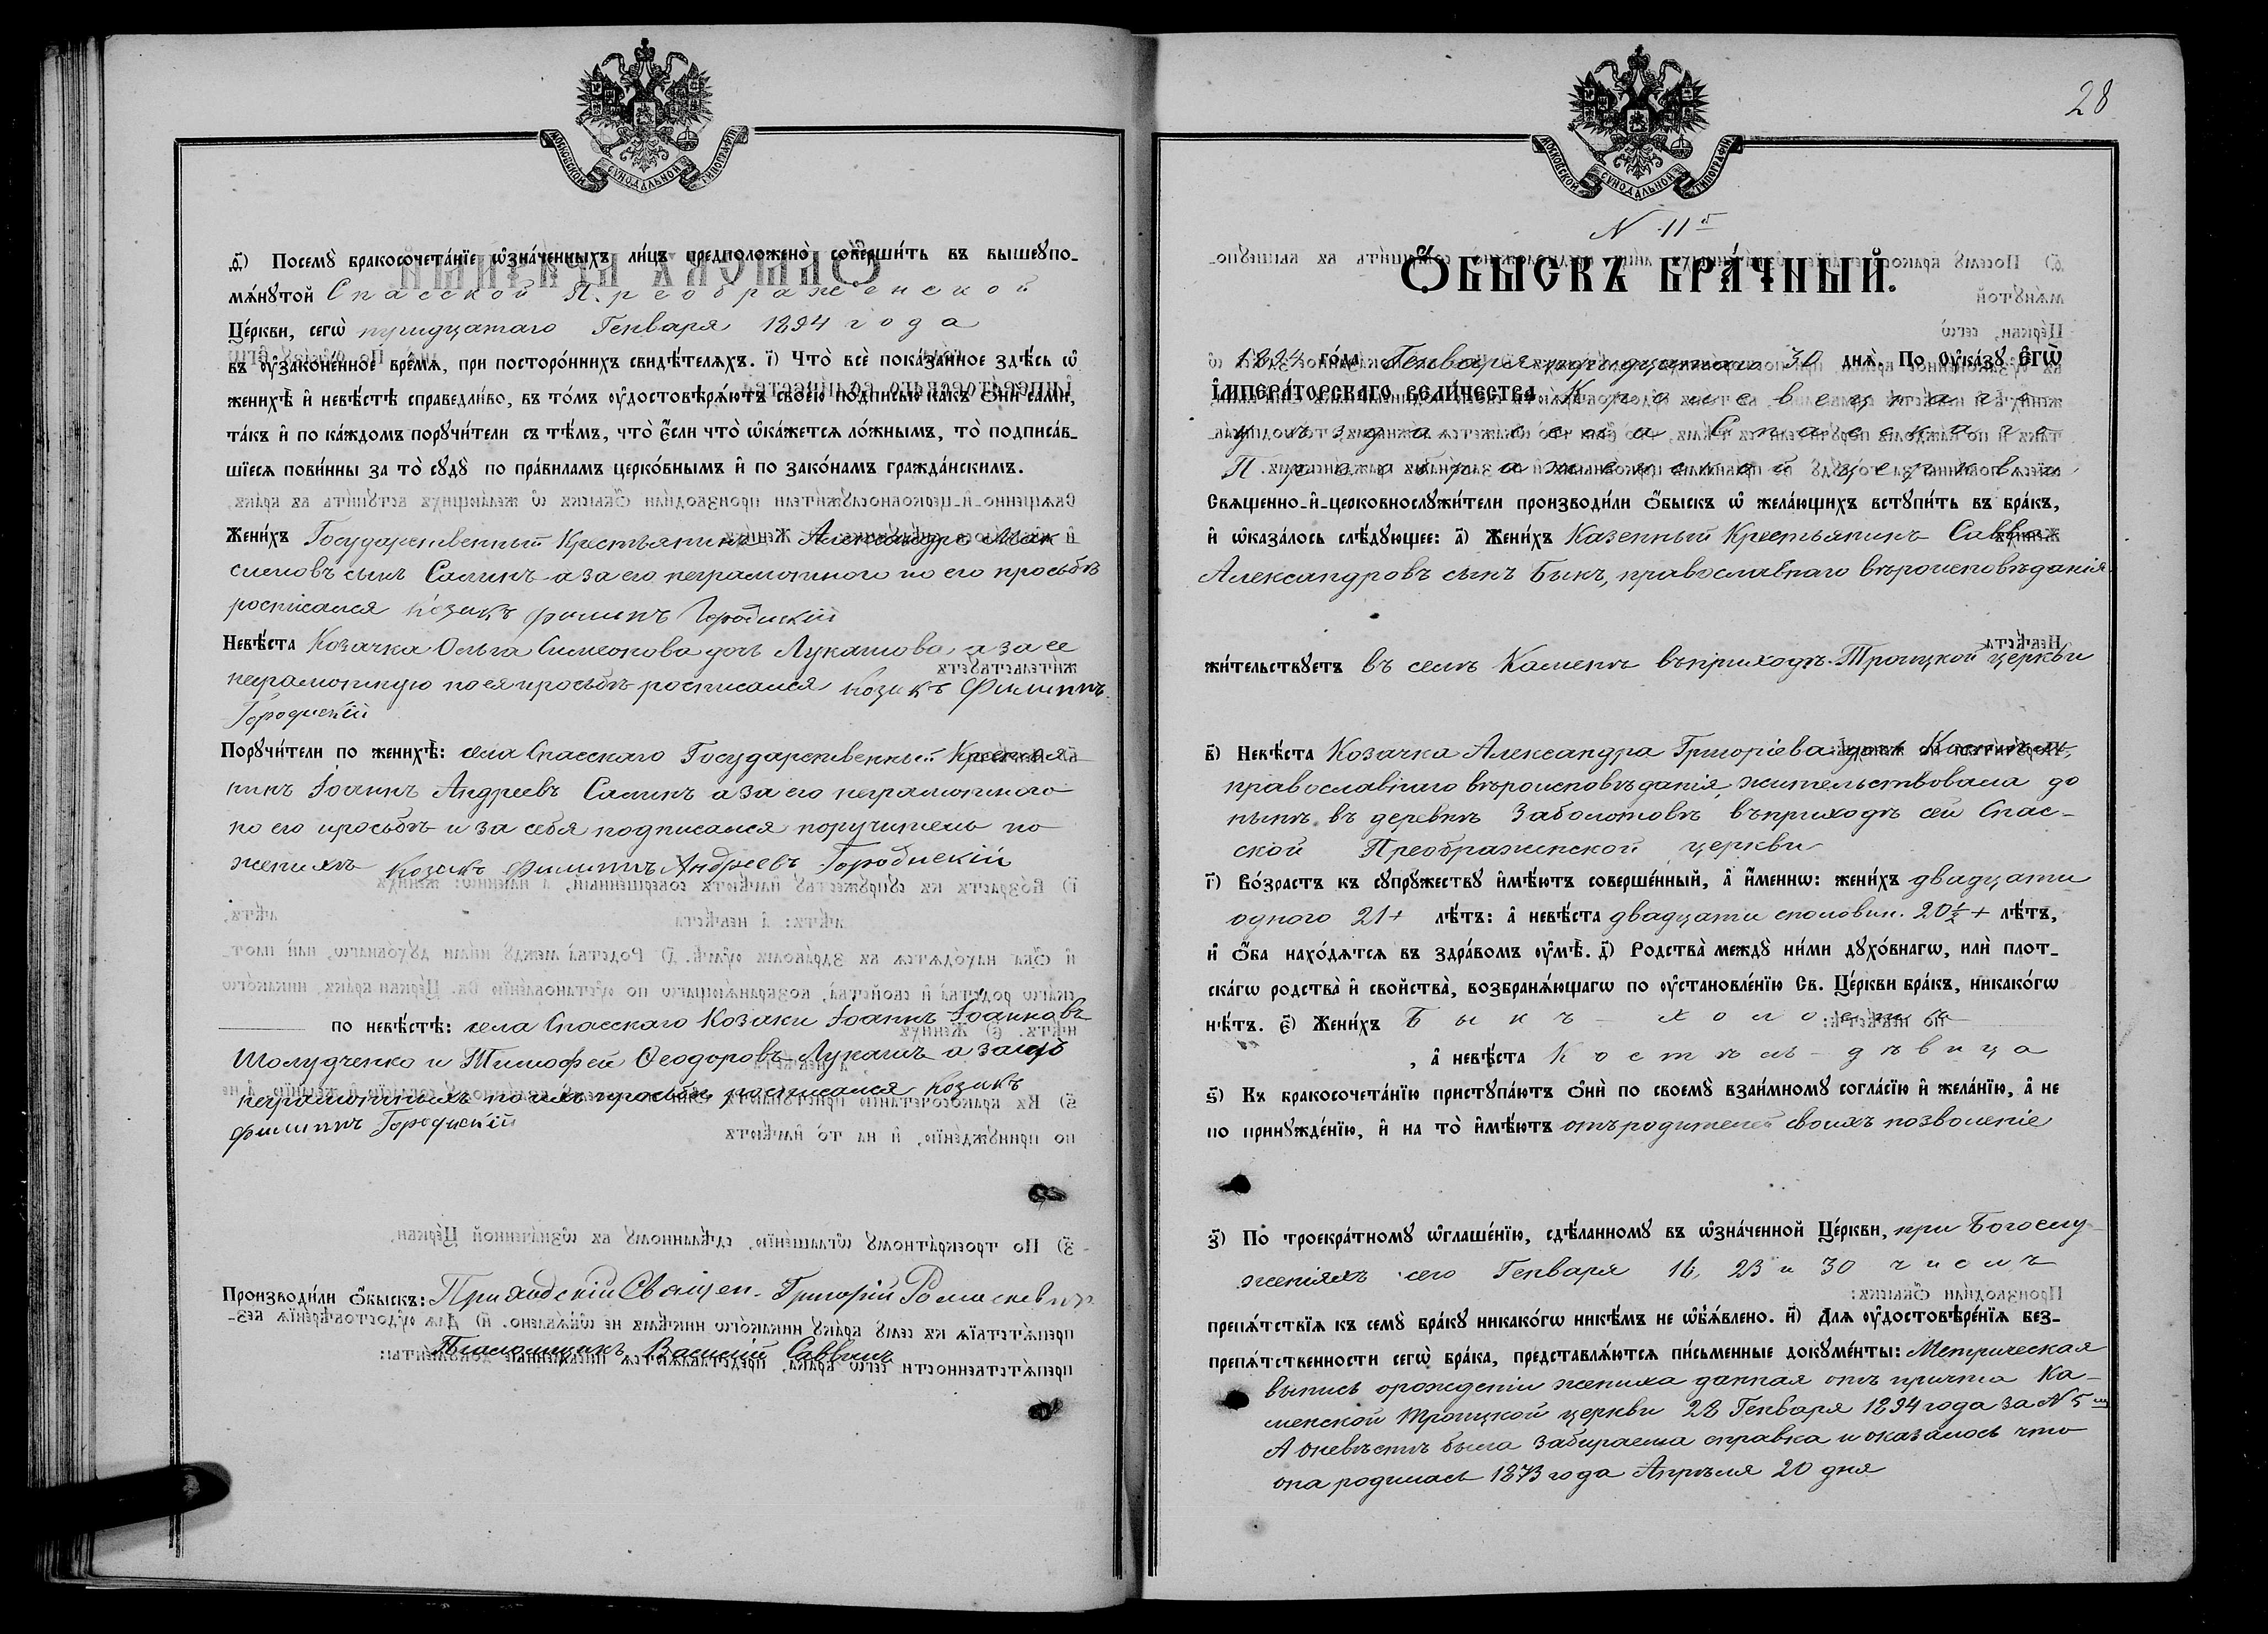 МОСКОВСКОЙ СѴНОДАЛЬНОЙ ТИПОГРАФІИ
д҃) Посемꙋ̀ бракосочета́нїе ѡ҆зна́ченныхъ ли́цъ предположено̀ соверши́ть въ вышеꙋпо-
мѧ́нꙋтой Спасской Преображенской
Це́ркви, сегѡ̀ тридцатаго Генваря 1894 года
въ ᲂу҆зако́ненное вре́мѧ, при посторо́ннихъ свидѣ́телѧхъ. і҃) Что̀ всѐ пока́занное здѣ́сь ѡ҆
женихѣ̀ и҆ невѣ́стѣ справедли́во, въ то́мъ ᲂу҆достовѣрѧ́ютъ своею по́дписью какъ ѻ҆нѝ са́ми,
та́къ и҆ по ка́ждомъ порꙋчи́тели съ тѣ́мъ, что̀ є҆́сли что̀ ѡ҆ка́жетсѧ ло́жнымъ, то̀ подписа́в-
шїесѧ пови́нны за то̀ сꙋдꙋ̀ по пра́виламъ церко́внымъ и҆ по зако́намъ гражда́нскимъ.
Жени́хъ Государственный Крестьянинъ Александръ Мак
симовъ сынъ Салинъ а за его неграмотного по его просьбѣ
росписался Козакъ Филипъ Городискій
Невѣ́ста Козачка Ольга Симеонова дочь Лукашова, а за ее
неграмотную по ея просьбѣ росписался Козакъ Филиппъ
Городискій
Порꙋчи́тели по женихѣ̀: села Спасскаго Государственный Крестья-
нинъ Іоаннъ Андреевъ Салинъ а за его неграмотного
по его просьбѣ и за себя подписался поручитель по
женихѣ Козакъ Филиппъ Андреевъ Городискій
по невѣ́стѣ: села Спасскаго Козаки Іоаннъ Іоанновъ
Шолудченко и Тимофей Ѳеодоровъ Лукашъ а за
неграмотныхъ по ихъ просьбѣ росписался Козакъ
Филиппъ Городискій
Производи́ли ѻ҆́быскъ: Приходскій Священ. Григорій
Псаломщикъ Василій Саввичъ
28
МОСКОВСКОЙ СѴНОДАЛЬНОЙ ТИПОГРАФІИ
N 11й
Ѻ҆́БЫСКЪ БРА́ЧНЫЙ.
1894 го́да Генваря тридцатаго 30 днѧ̀. По ᲂу҆ка́зꙋ Є҆гѡ̀
І҆мпера́торскагѡ Вели́чества Кролевецкаго
уѣзда села Спасскаго
Преображенской церкви
Свѧщенно-и҆-церковнослꙋжи́тели производи́ли ѻ҆́быскъ ѡ҆ жела́ющихъ встꙋпи́ть въ бра́къ,
и҆ ѡ҆каза́лось слѣ́дꙋющее: а҃) Жени́хъ Казенный Крестьянинъ Савва
Александровъ сынъ Быкъ, православнаго вѣроисповѣданія
жи́тельствꙋетъ въ селѣ Каменѣ въ приходѣ Троицкой церкви
в҃) Невѣ́ста Козачка Александра Григоріева дочь Костѣль,
православнаго вѣроисповѣданія, жительствовала до
нынѣ въ деревнѣ Заболотовѣ въ приходѣ сей Спас-
ской Преображенской церкви
г҃) Во́зрастъ къ сꙋпрꙋ́жествꙋ и҆мѣ́ютъ соверше́нный, а҆ и҆́меннѡ: жени́хъ двадцати
одного 21+ лѣ́тъ: а҆ невѣ́ста двадцати с половин. 20½ + лѣ́тъ,
и҆ ѻ҆́ба нахо́дѧтсѧ въ здра́вомъ ᲂу҆мѣ̀. д҃) Родства̀ междꙋ̀ ни́ми дꙋхо́внагѡ, илѝ плот-
ска́гѡ родства̀ и҆ свойства̀, возбранѧ́ющагѡ по ᲂу҆становле́нїю Св. Це́ркви бра́къ, никако́гѡ
нѣ́тъ. є҃) Жени́хъ Быкъ – холостъ
, а҆ невѣ́ста Костѣль – дѣвица
ѕ҃) Къ бракосочета́нїю пристꙋпа́ютъ ѻ҆нѝ по своемꙋ̀ взаи́мномꙋ согла́сїю и҆ жела́нїю, а҆ не
по принꙋжде́нїю, и҆ на то̀ и҆мѣ́ютъ отъ родителей своихъ позволеніе
з҃) По троекра́тномꙋ ѡ҆глаше́нїю, сдѣ́ланномꙋ въ ѡ҆зна́ченной Це́ркви, при Богослу-
женіяхъ сего Генваря 16, 23 и 30 числъ
препѧ́тствїѧ къ семꙋ̀ бра́кꙋ никако́гѡ никѣ́мъ не ѡ҆б̾ѧ́влено. и҃) Длѧ ᲂу҆достовѣре́нїѧ без-
препѧ́тственности сегѡ̀ бра́ка, представлѧ́ютсѧ пи́сьменные докꙋме́нты: Метрическая
выпись о рожденіи жениха данная отъ причта Ка-
менской Троицкой церкви 28 Генваря 1894 года за N 5
А о невѣстѣ была забираема справка и оказалось что
она родилась 1873 года Апрѣля 20 дня